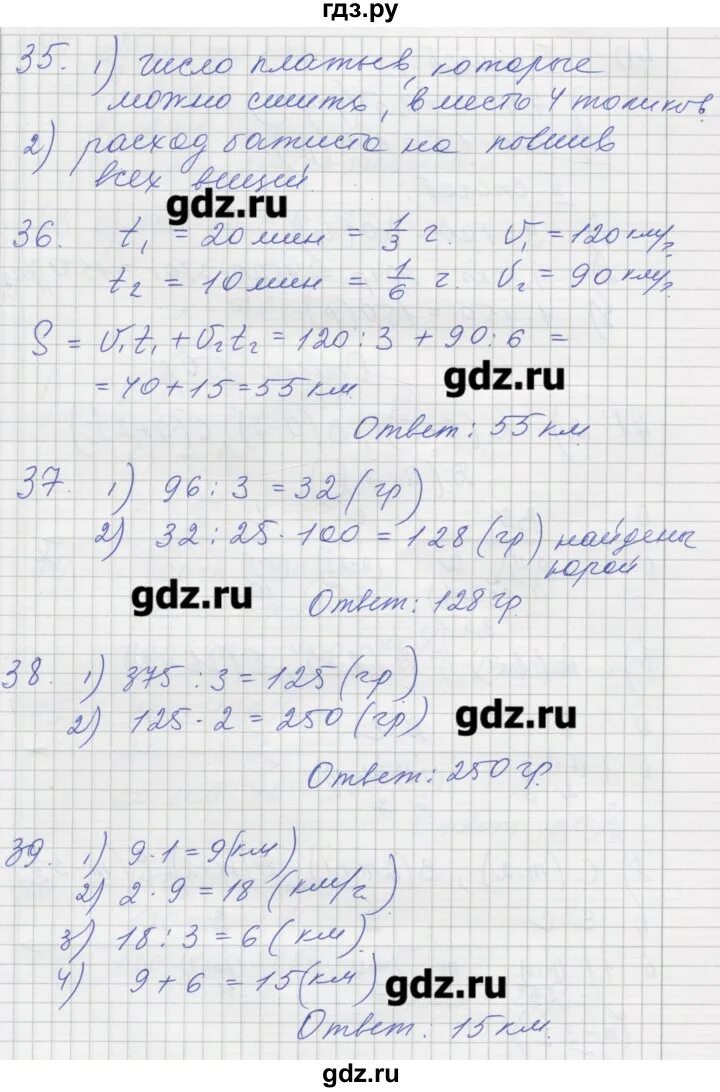 гдз.ру
35. 1) число платьев, которые
можно сшить, вместо 4 топиков
2) расход батиста на пошив
всех вещей.
gdz.ru
36. t₁ = 20 мин = 1/3 ч. V₁ = 120 км/ч
t₂ = 10 мин = 1/6 ч. V₂ = 90 км/ч.
S = V₁t₁ + V₂t₂ = 120 : 3 + 90 : 6 =
= 40 + 15 = 55 км.
gdz.ru
Ответ: 55 км.
37. 1) 96 : 3 = 32 (гр)
2) 32 : 25 · 100 = 128 (гр) найдены
юрой
gdz.ru
Ответ: 128 гр.
38. 1) 375 : 3 = 125 (гр)
2) 125 · 2 = 250 (гр)
gdz.ru
Ответ: 250 гр.
39. 1) 9 · 1 = 9 (км)
2) 2 · 9 = 18 (км/ч.)
3) 18 : 3 = 6 (км).
4) 9 + 6 = 15 (км)
gdz.ru
Ответ. 15 км.
gdz.ru